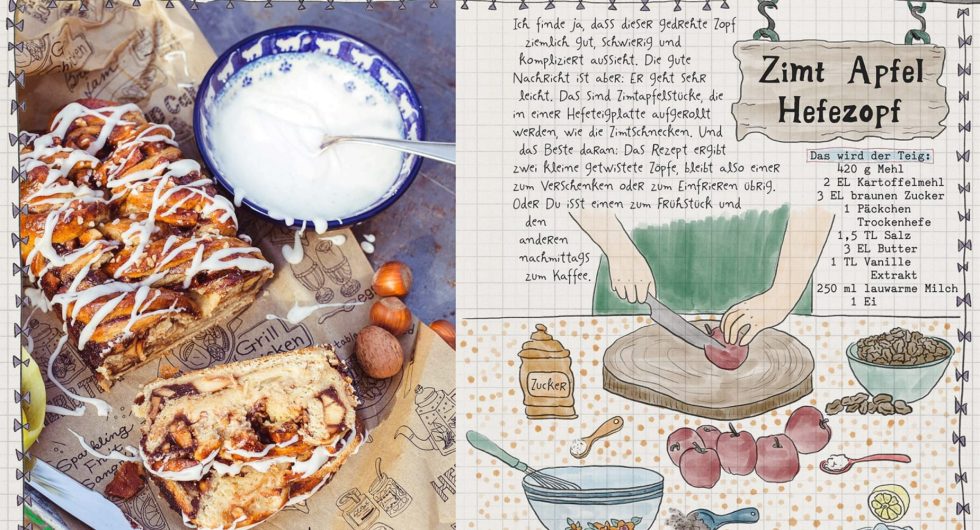 Ich finde ja, dass dieser gedrehte Zopf
ziemlich gut, schwierig und
kompliziert aussieht. Die gute
Nachricht ist aber: Er geht sehr
leicht. Das sind Zimtapfelstücke, die
in einer Hefeteigplatte aufgerollt
werden, wie die Zimtschnecken. Und
das Beste daran: Das Rezept ergibt
zwei kleine getwistete Zöpfe, bleibt also einer
zum Verschenken oder zum Einfrieren übrig.
Oder Du isst einen zum Frühstück und
den
anderen
nachmittags
zum Kaffee.
Zimt Apfel
Hefezopf
Das wird der Teig:
420 g Mehl
2 EL Kartoffelmehl
3 EL braunen Zucker
1 Päckchen
Trockenhefe
1,5 TL Salz
3 EL Butter
1 TL Vanille
Extrakt
250 ml lauwarme Milch
1 Ei
Zucker
Grill
Sparkling